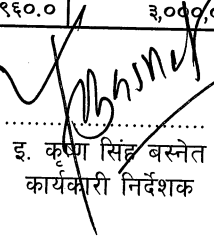 ९६०.० ३,०००,
इ. कृष्ण सिंह बस्नेत
कार्यकारी निर्देशक